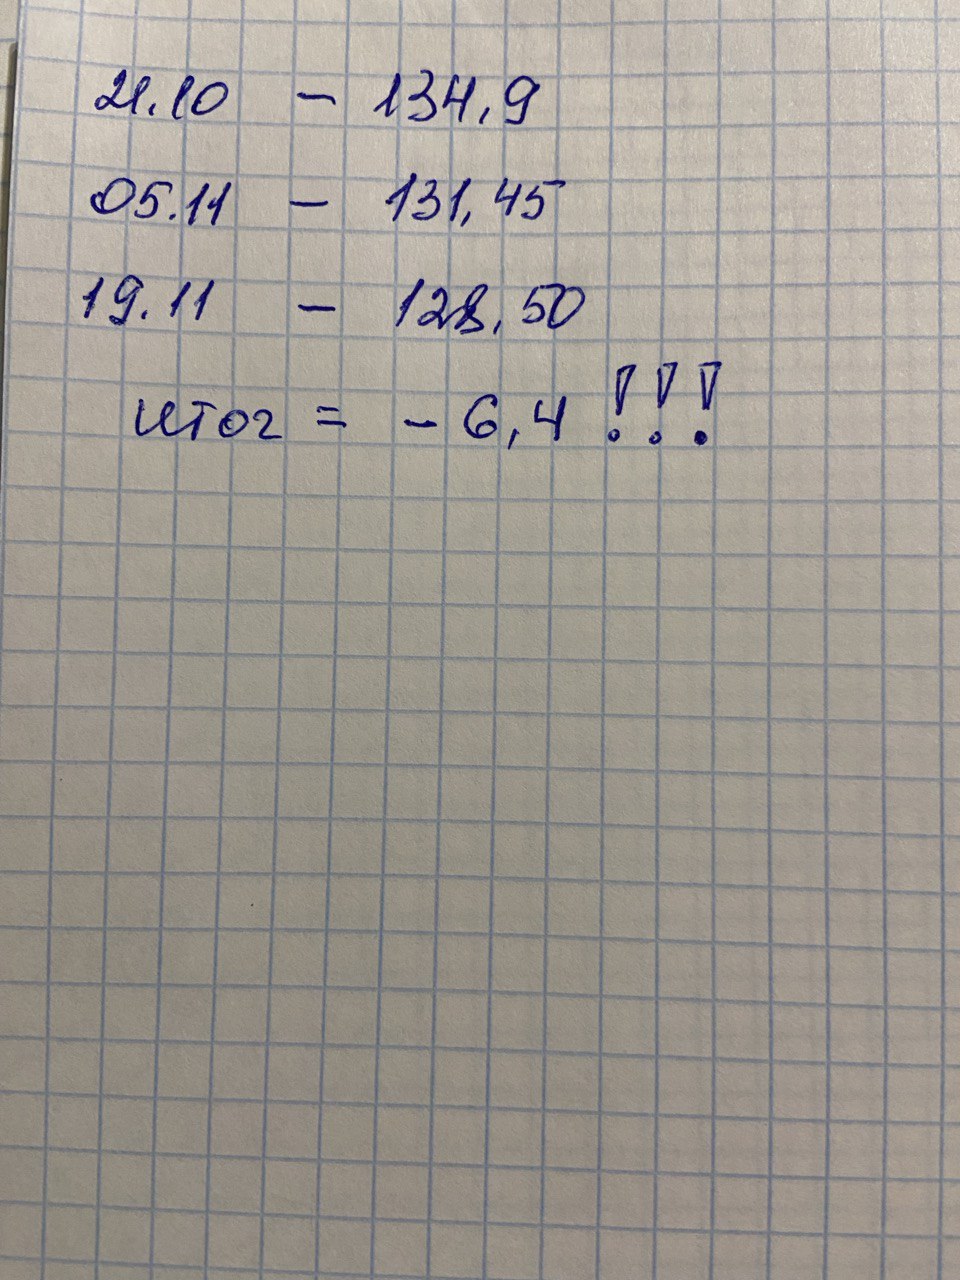 21.10 - 134,9
05.11 - 131,45
19.11 - 128,50
итог = - 6,4 !!!